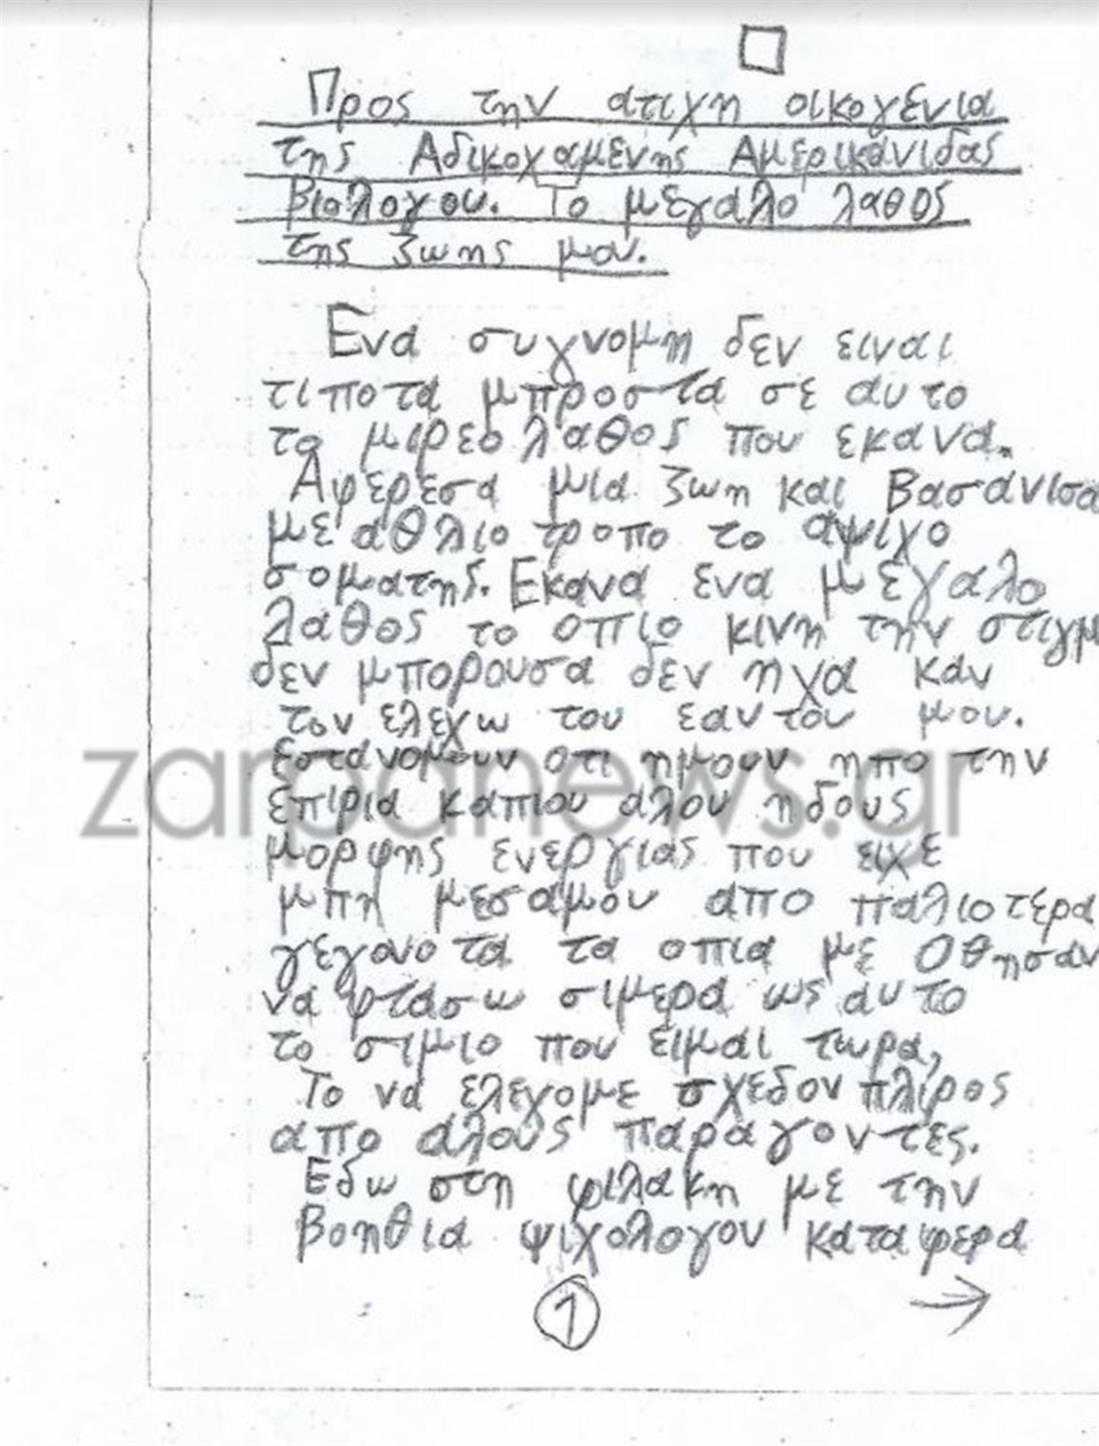 Προς την ατιχη οικογενια
της Αδικοχαμενης Αμερικανιδας
Βιολογου. Το μεγαλο λαθος
της ζωης μου.
Ενα συγνομη δεν ειναι
τιποτα μπροστα σε αυτο
το μιρεο λαθος που εκανα.
Αφερεσα μια ζωη και Βασανισα
με αθλιο τροπο το αψιχο
σοματης. Εκανα ενα μεγαλο
λαθος το οπιο κινη την στιγμ
δεν μπορουσα δεν ηχα καν
τον ελεχω του εαυτου μου.
εστανομουν οτι ημουν ηπο την
επιρια καπιου αλου ηδους
μορφης ενεργιας που ειχε
μπη μεσαμου απο παλιοτερα
γεγονοτα τα οπια με Οθησαν
να φτασω σιμερα ως αυτο
το σιμιο που ειμαι τωρα,
Το να ελεχομε σχεδον πλιρος
απο αλους παραγοντες.
Εδω στη φιλακη με την
βοηθια ψιχολογου καταφερα
1 →
zarpanews.gr